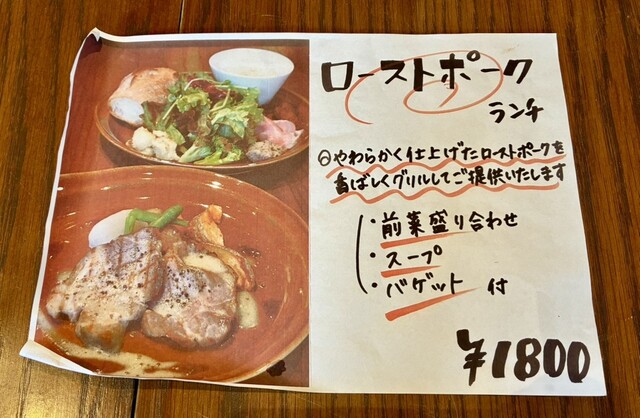 ローストポーク
ランチ
○やわらかく仕上げたローストポークを
香ばしくグリルしてご提供いたします
・前菜盛り合わせ
・スープ
・バゲット 付
¥1800